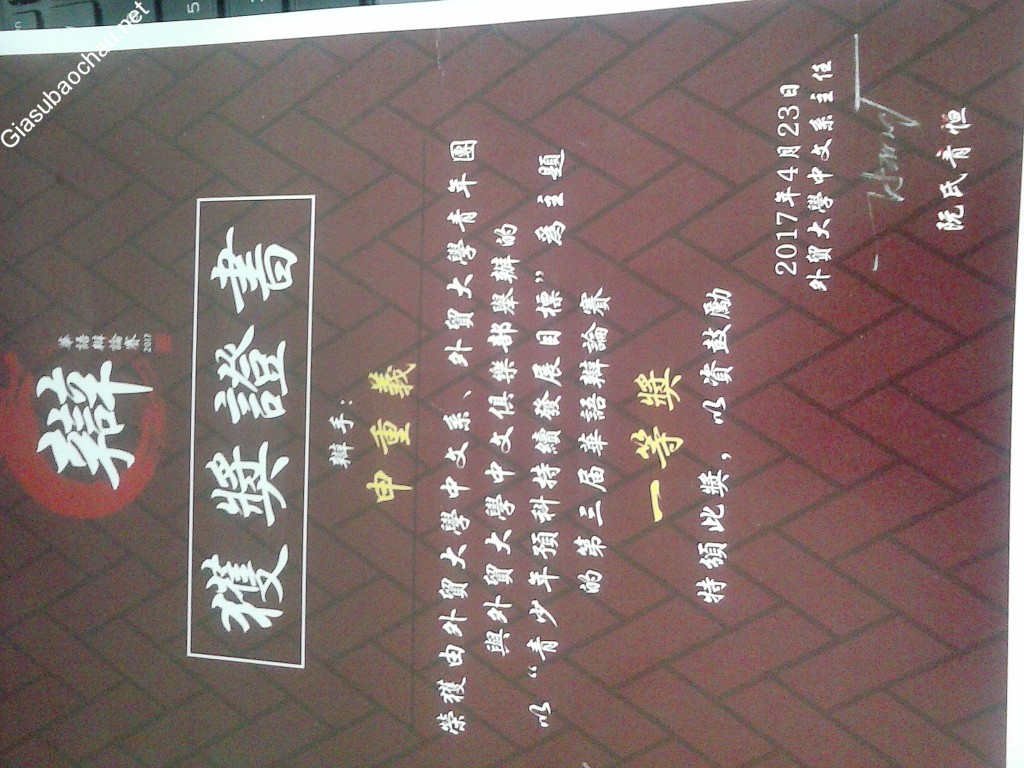 Giasubaochau.net
辯
華語辯論賽
2017
獲獎證書
辯手：
申重義
榮獲由外貿大學中文系、外貿大學青年團
與外貿大學中文俱樂部舉辦的
以“青少年預科持續發展目標”為主題
的第三届華語辯論賽
一等獎
特頒此獎，以資鼓勵
2017年4月23日
外貿大學中文系主任
阮氏青恒